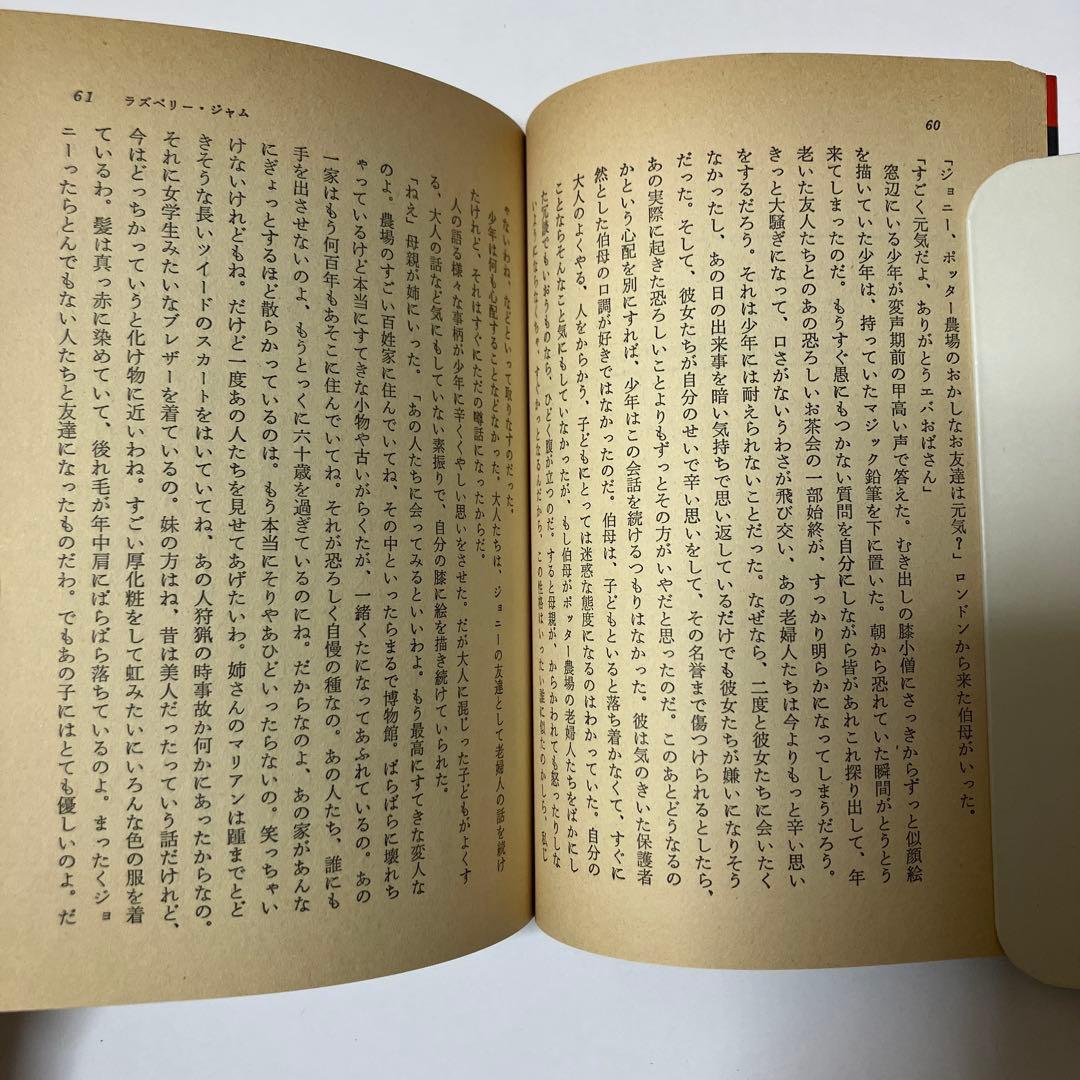 60
「ジョニー、ポッター農場のおかしなお友達は元気？」ロンドンから来た伯母がいった。
「すごく元気だよ、ありがとうエバおばさん」
窓辺にいる少年が変声期前の甲高い声で答えた。むき出しの膝小僧にさっきからずっと似顔絵
を描いていた少年は、持っていたマジック鉛筆を下に置いた。朝から恐れていた瞬間がとうとう
来てしまったのだ。もうすぐ愚にもつかない質問を自分にしながら皆があれこれ探り出して、年
老いた友人たちとのあの恐ろしいお茶会の一部始終が、すっかり明らかになってしまうだろう。
きっと大騒ぎになって、口さがないうわさが飛び交い、あの老婦人たちは今よりもっと辛い思い
をするだろう。それは少年には耐えられないことだった。なぜなら、二度と彼女たちに会いたく
なかったし、あの日の出来事を暗い気持ちで思い返しているだけでも彼女たちが嫌いになりそう
だった。そして、彼女たちが自分のせいで辛い思いをして、その名誉まで傷つけられるとしたら、
あの実際に起きた恐ろしいことよりもずっとその方がいやだと思ったのだ。このあとどうなるの
かという心配を別にすれば、少年はこの会話を続けるつもりはなかった。彼は気のきいた保護者
然とした伯母の口調が好きではなかったのだ。伯母は、子どもといると落ち着かなくて、すぐに
大人のよくやる、人をからかう、子どもにとっては迷惑な態度になるのはわかっていた。自分の
ことならそんなこと気にもしていなかったが、もし伯母がポッター農場の老婦人たちをばかにし
た冗談でもいおうものなら、ひどく腹が立つのだ。すると母親が、からかわれても怒ったりしな
いようにならなくちゃ、すぐかっとなるんだから、この性格はいったい誰に似たのかしら、私じ
61 ラズベリー・ジャム
ゃないわね、などといって取りなすのだった。
少年は何も心配することなどなかった。大人たちは、ジョニーの友達として老婦人の話を続け
たけれど、それはすぐにただの噂話になったからだ。
人の語る様々な事柄が少年に辛くくやしい思いをさせた。だが大人に混じった子どもがよくす
る、大人の話など気にもしていない素振りで、自分の膝に絵を描き続けていられた。
「ねえ」母親が姉にいった。「あの人たちに会ってみるといいわよ。もう最高にすてきな変人な
のよ。農場のすごい百姓家に住んでいてね、その中といったらまるで博物館。ばらばらに壊れち
ゃっているけど本当にすてきな小物や古いがらくたが、一緒くたになってあふれているの。あの
一家はもう何百年もあそこに住んでいてね。それが恐ろしく自慢の種なの。あの人たち、誰にも
手を出させないのよ、もうとっくに六十歳を過ぎているのにね。だからなのよ、あの家があんな
にぎょっとするほど散らかっているのは。もう本当にそりゃあひどいったらないの。笑っちゃい
けないけれどもね。だけど一度あの人たちを見せてあげたいわ。姉さんのマリアンは踵までとど
きそうな長いツイードのスカートをはいていてね、あの人狩猟の時事故か何かにあったからなの。
それに女学生みたいなブレザーを着ているの。妹の方はね、昔は美人だったっていう話だけれど、
今はどっちかっていうと化け物に近いわね。すごい厚化粧をして虹みたいにいろんな色の服を着
ているわ。髪は真っ赤に染めていて、後れ毛が年中肩にばらばら落ちているのよ。まったくジョ
ニーったらとんでもない人たちと友達になったものだわ。でもあの子にはとても優しいのよ。だ